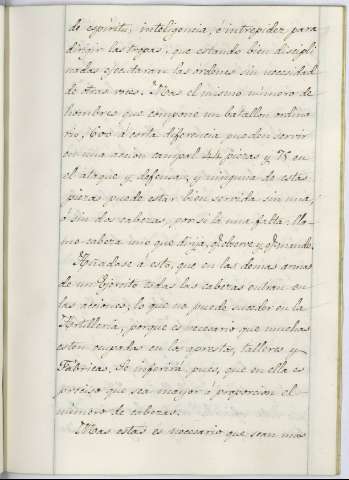 de espiritu, inteligencia, é intrepidez para
dirigir las tropas, que estando bien discipli
nadas ejecutaran las órdenes sin necesidad
de otras voces. Mas el mismo número de
hombres que compone un batallon ordina
rio, 600 á corta diferencia pueden servir
en una accion campal 44 piezas y 75 en
el ataque y defensa; y ninguna de estas
piezas puede estar bien servida sin una,
ó sin dos cabezas, por si la una falta: lla-
mo cabeza uno que dirija, observe y mande.
Añadase á esto, que en las demas armas
de un Ejército todas las cabezas entran en
las acciones; lo que no puede suceder en la
Artillería, porque es necesario que muchas
esten ocupadas en los talleres y
Fábricas. Se inferirá, pues, que en ella es
preciso que sea mayor á proporcion el
número de cabezas.
Mas estas es necesario que sean mas